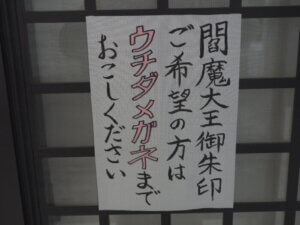 閻魔大王御朱印
ご希望の方は
ウチダメガネまで
おこしください